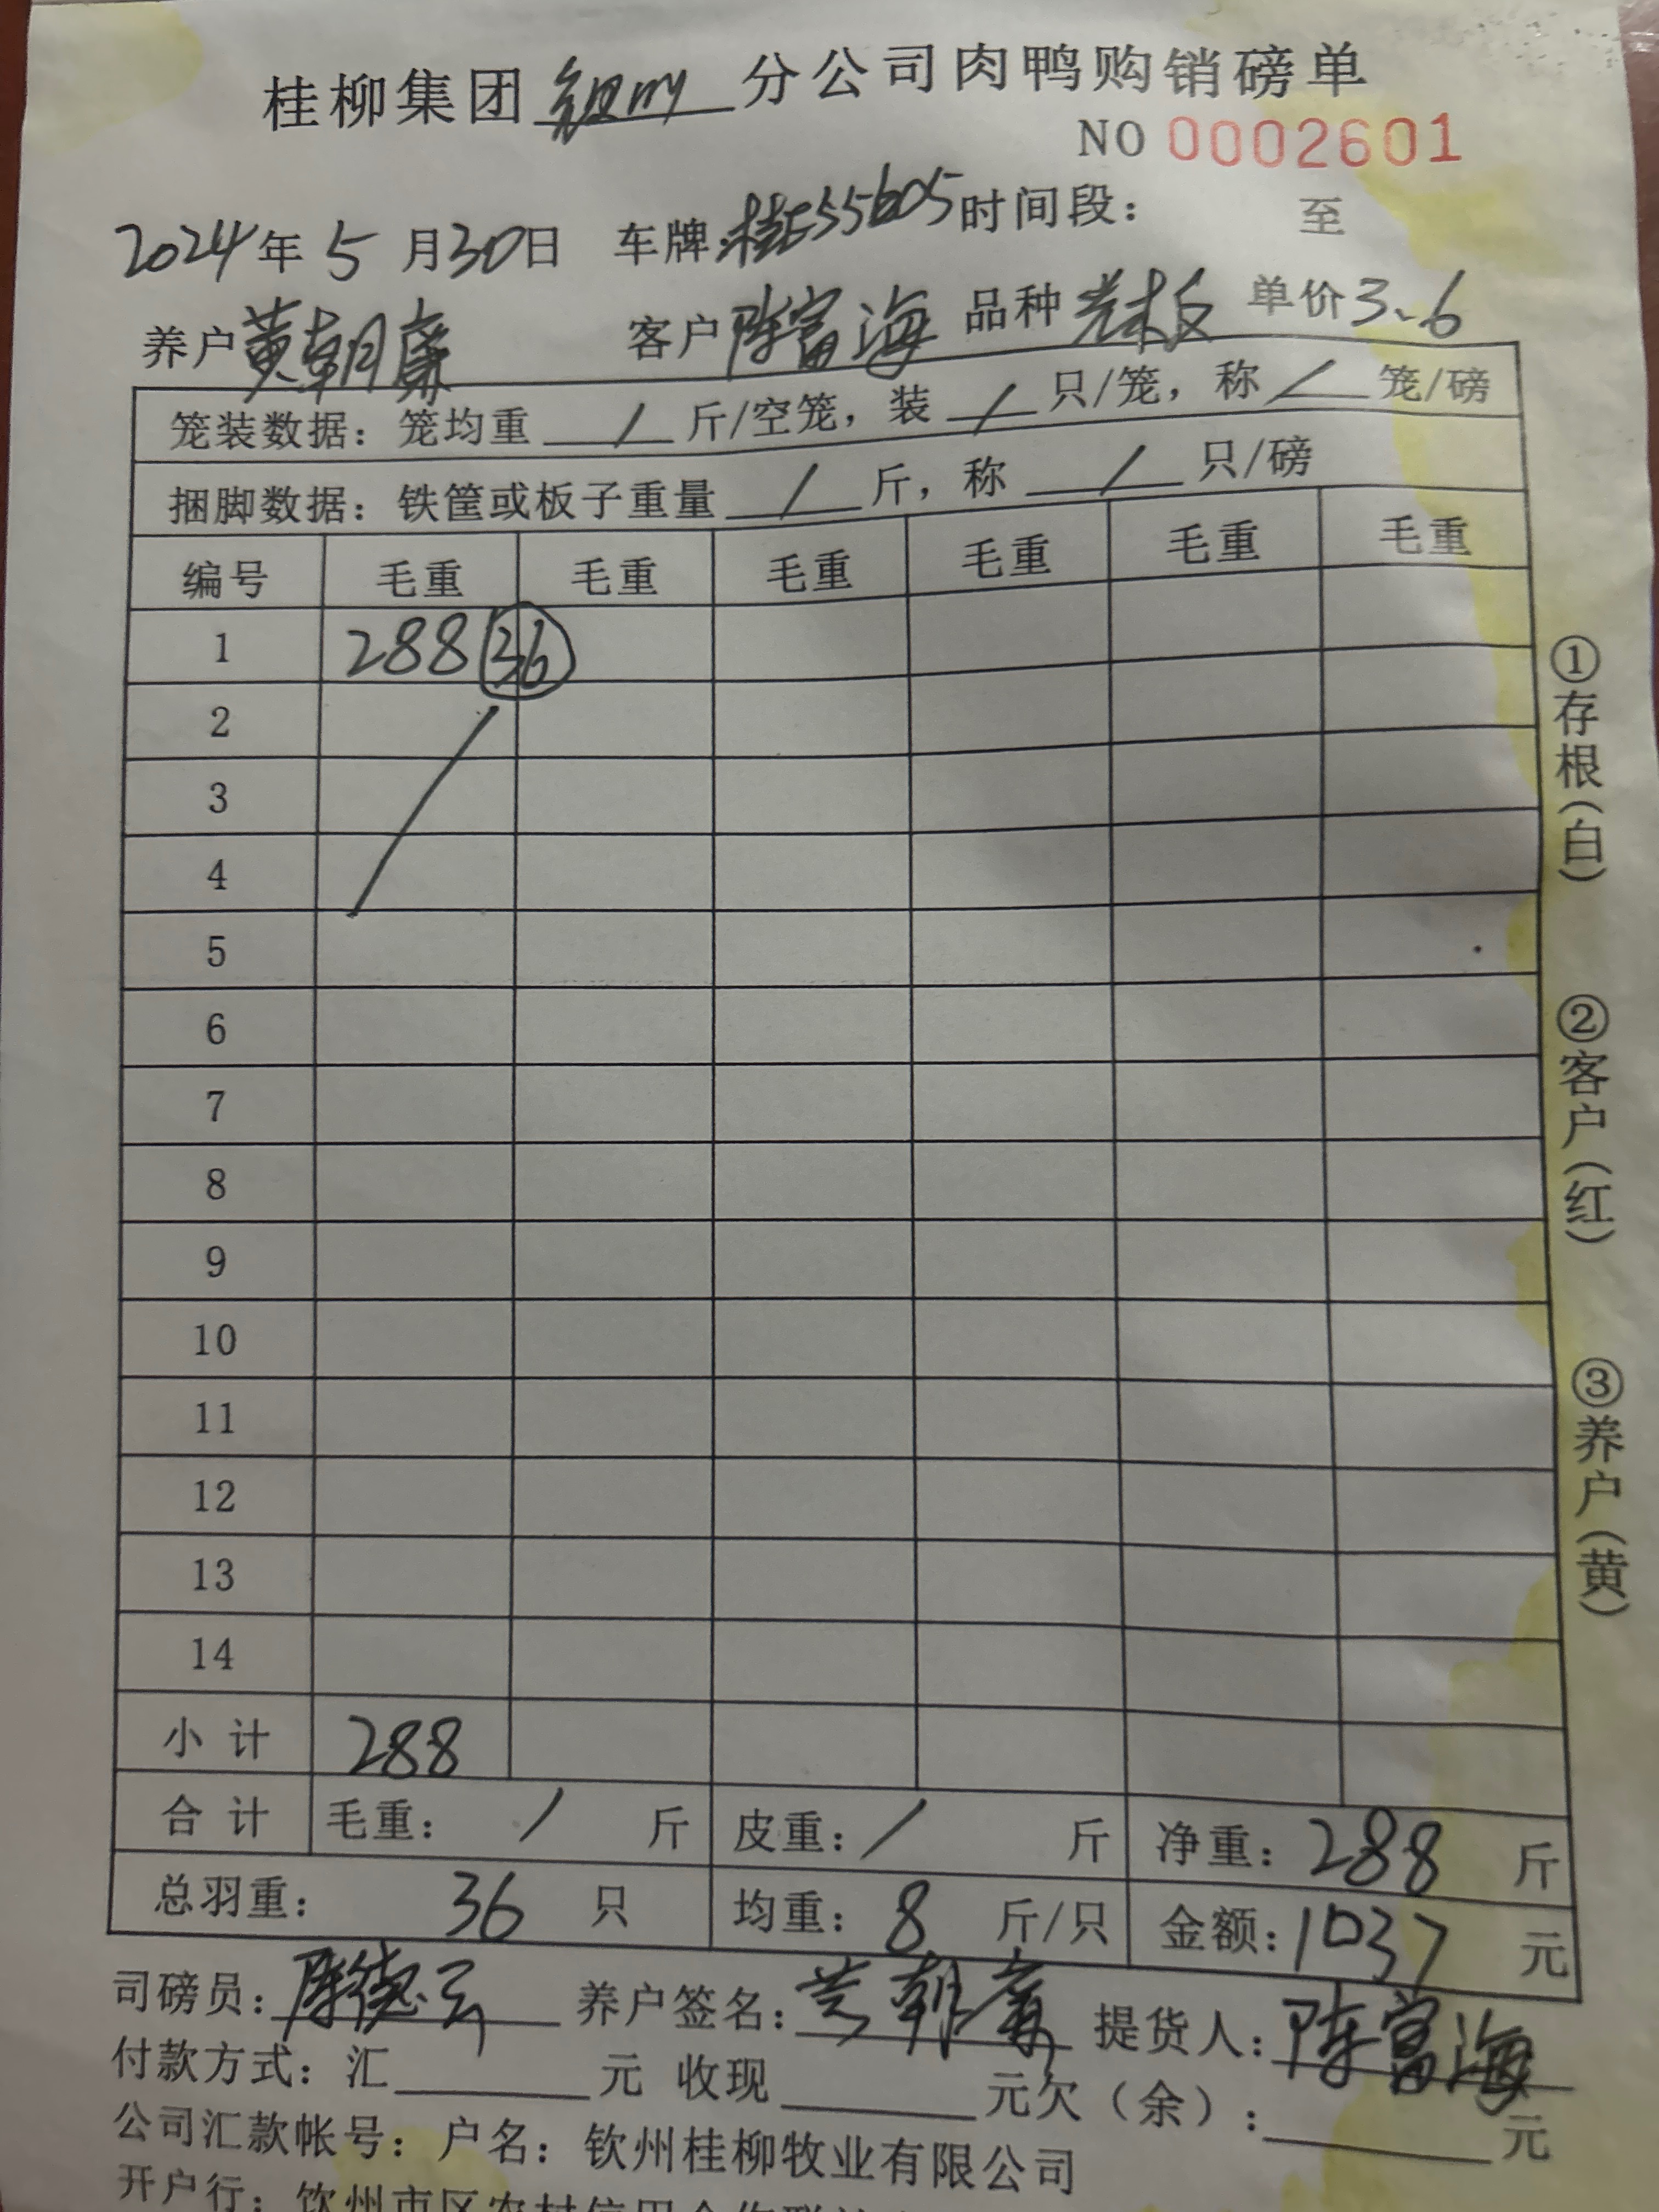 桂柳集团钦州分公司肉鸭购销磅单
NO 0002601
2024年5月30日 车牌:桂E55605时间段: 至
养户黄朝廉 客户陈富海 品种光板 单价3.6
笼装数据: 笼均重 / 斤/空笼, 装 / 只/笼, 称 / 笼/磅
捆脚数据: 铁筐或板子重量 / 斤, 称 / 只/磅
编号 毛重 毛重 毛重 毛重 毛重 毛重
1 288 36
2
3
4
5
6
7
8
9
10
11
12
13
14
小计 288
合计 毛重: / 斤 皮重: / 斤 净重: 288 斤
总羽重: 36 只 均重: 8 斤/只 金额: 1037 元
司磅员: 陈德云 养户签名: 黄朝廉 提货人: 陈富海
付款方式: 汇 元 收现 元欠(余): 元
公司汇款帐号: 户名: 钦州桂柳牧业有限公司
开户行: 钦州市区农村信用合作联社
①存根(白)
②客户(红)
③养户(黄)